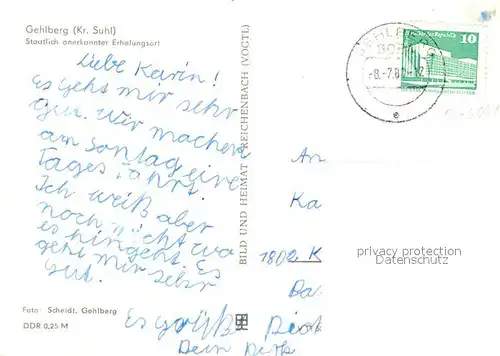 Gehlberg (Kr. Suhl)
Staatlich anerkannter Erholungsort
Liebe Karin!
Es geht mir sehr
gut. Wir machen
am Sontag eine
Tages fahrt.
Ich weiß aber
noch nicht wo
es hingeht. Es
geht mir sehr
gut.
Es grüßt Dich
Dein Dirk
Foto: Scheidt, Gehlberg
DDR 0,25 M
BILD UND HEIMAT REICHENBACH (VOGTL)
GEHLBERG
-8.-7.80-12
10
An
Ka
1802 K
privacy protection
Datenschutz